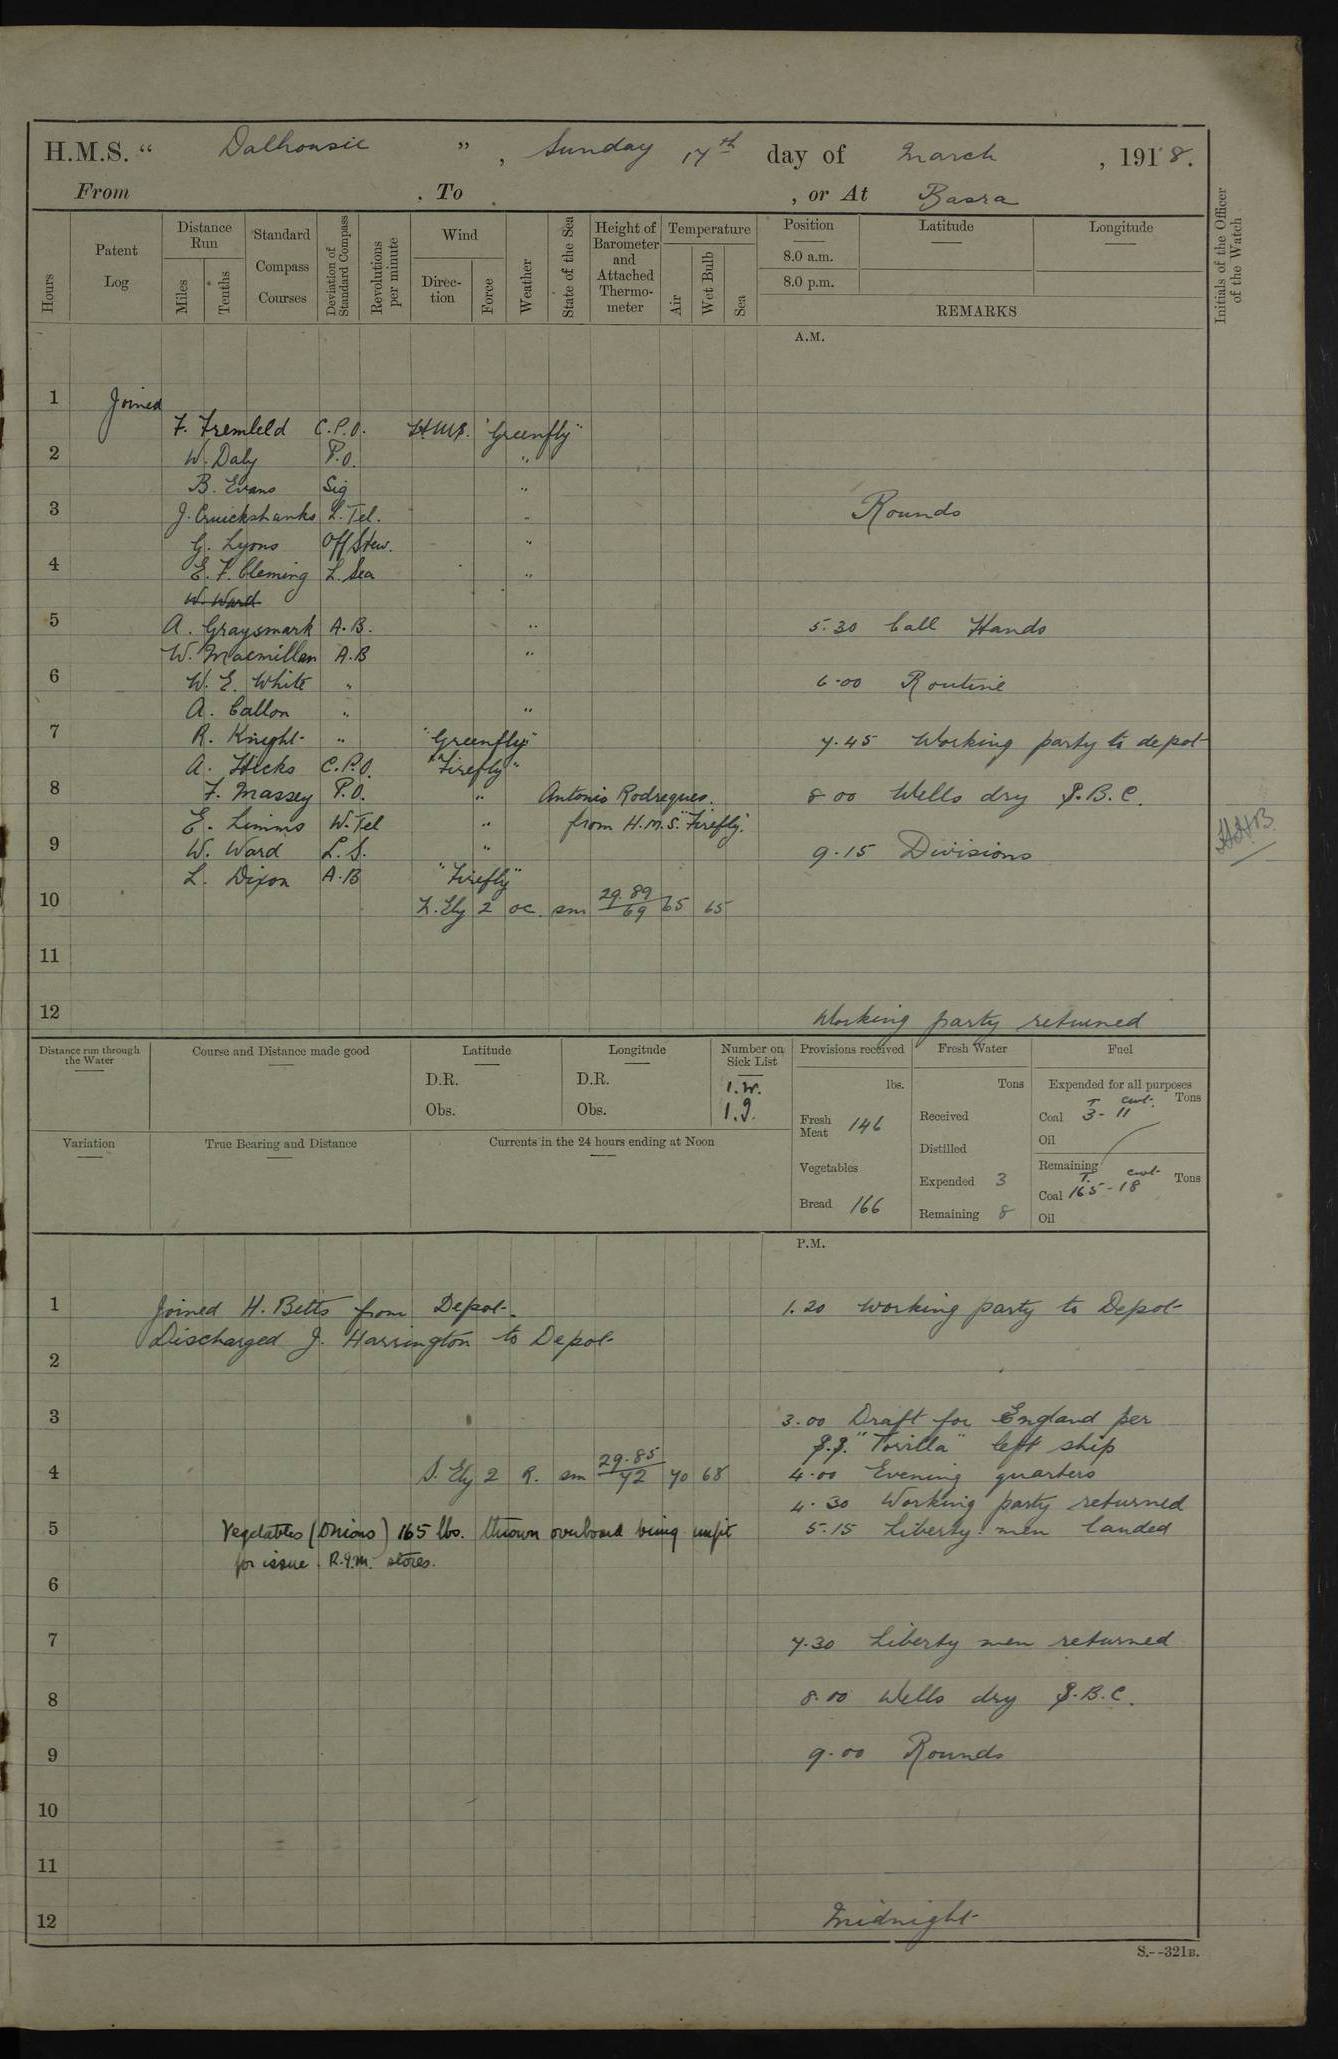 H.M.S. “ Dalhousie ” , Sunday 17th day of March , 1918.
From . To , or At Basra
Hours
Patent Log
Distance Run
Miles
Tenths
Standard Compass Courses
Deviation of Standard Compass
Revolutions per minute
Wind
Direction
Force
Weather
State of the Sea
Height of Barometer and Attached Thermometer
Temperature
Air
Wet Bulb
Sea
Position
8.0 a.m.
8.0 p.m.
Latitude
Longitude
REMARKS
Initials of the Officer of the Watch
A.M.
1 Joined
F. Fremleld C.P.O. H.M.S. "Greenfly"
2 W. Daly P.O. "
B. Evans Sig "
3 J. Cruickshanks L. Tel. " Rounds
G. Lyons Off Stew. "
4 E. F. Cleming L. Sea "
W. Ward
5 A. Graysmark A.B. " 5.30 Call Hands
W. Macmillan A.B "
6 W. E. White " 6.00 Routine
A. Callon " "
7 R. Knight " "Greenfly" 7.45 Working party to depot
A. Hicks C.P.O. "Firefly"
8 F. Massey P.O. " Antonio Rodreques. 8.00 Wells dry S.B.C.
E. Limms W. Tel " from H.M.S. "Firefly". H.H.B.
9 W. Ward L.S. " 9.15 Divisions
L. Dixon A.B "Firefly"
10 N. Ely 2 oc sm 29.89/69 65 65
11
12 Working party returned
Distance run through the Water
Course and Distance made good
Latitude
D.R.
Obs.
Longitude
D.R.
Obs.
Number on Sick List
1.W.
1.I.
Provisions received
lbs.
Fresh Meat 146
Vegetables
Bread 166
Fresh Water
Tons
Received
Distilled
Expended 3
Remaining 8
Fuel
Expended for all purposes
T. cwt. Tons
Coal 3 - 11
Oil
Remaining
T. cwt. Tons
Coal 165 - 18
Oil
Variation
True Bearing and Distance
Currents in the 24 hours ending at Noon
P.M.
1 Joined H. Betts from Depot. 1.20 Working party to Depot
Discharged J. Harrington to Depot
2
3 3.00 Draft for England per
S.S. "Torilla" left ship
4 S. Ely 2 R. sm 29.85/72 70 68 4.00 Evening quarters
4.30 Working party returned
5 Vegetables (Onions) 165 lbs. thrown overboard being unfit 5.15 Liberty men landed
for issue. R.I.M. stores.
6
7 7.30 Liberty men returned
8 8.00 Wells dry S.B.C.
9 9.00 Rounds
10
11
12 Midnight
S.--321B.